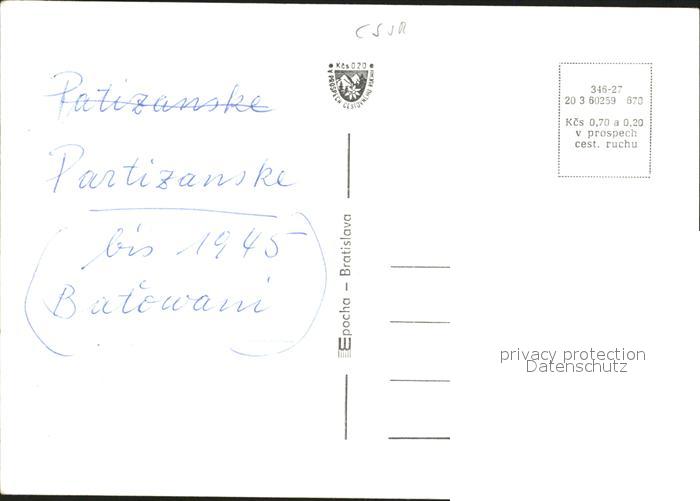 ČSSR
Kčs 0.20
V PROSPECH CESTOVNÉHO RUCHU
346-27
20 3 60259 670
Kčs 0,70 a 0,20
v prospech
cest. ruchu
Patizanske
Partizanske
(bis 1945
Baťowani)
Epocha – Bratislava
privacy protection
Datenschutz